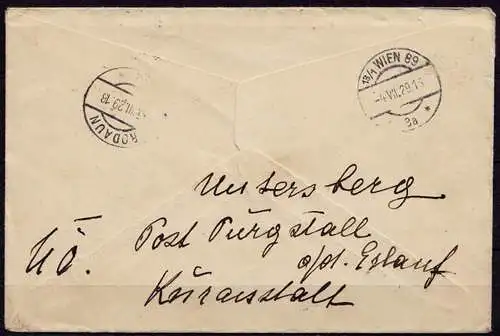 13/1 WIEN 89
-4.VII.29.13
3a *
RODAUN
.VII.29.18
Untersberg
Post Purgstall
N.Ö. a/d. Erlauf
Kuranstalt